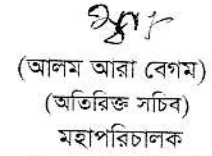 (আলম আরা বেগম)
(অতিরিক্ত সচিব)
মহাপরিচালক